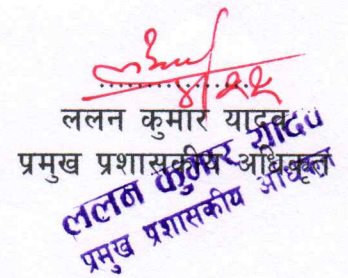 ४/२२
ललन कुमार यादव
प्रमुख प्रशासकीय अधिकृत
ललन कुमार यादव
प्रमुख प्रशासकीय अधिकृत